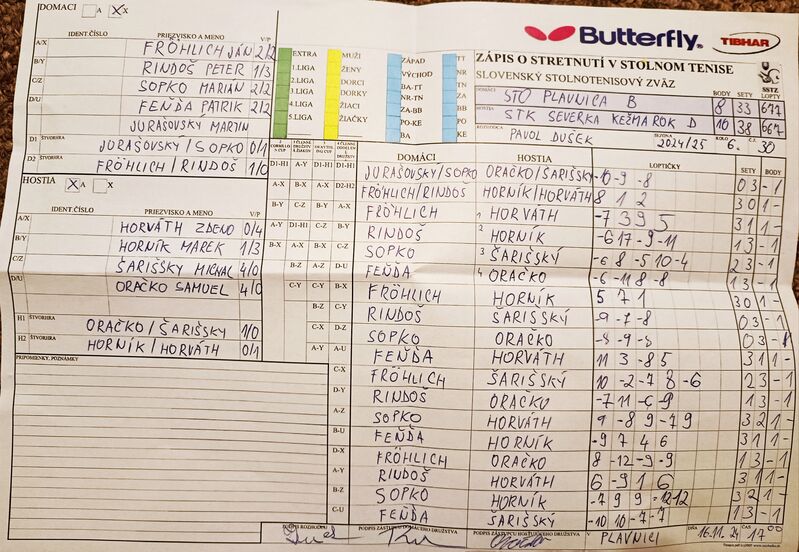 DOMÁCI A X
IDENT.ČÍSLO PRIEZVISKO A MENO V/P
A/X FRÖHLICH JÁN 2/2
B/Y RINDOŠ PETER 1/3
C/Z SOPKO MARIAN 2/2
D/U FEŇĎA PATRIK 2/2
JURAŠOVSKÝ MARTIN
D1 ŠTVORHRA JURAŠOVSKÝ/SOPKO 0/1
D2 ŠTVORHRA FRÖHLICH/RINDOŠ 1/0
HOSTIA X
IDENT.ČÍSLO PRIEZVISKO A MENO V/P
A/X HORVÁTH ZDENO 0/4
B/Y HORNÍK MAREK 1/3
C/Z ŠARIŠSKY MICHAL 4/0
D/U ORAČKO SAMUEL 4/0
H1 ŠTVORHRA ORAČKO/ŠARIŠSKY 1/0
H2 ŠTVORHRA HORNÍK/HORVÁTH 0/1
PRIPOMIENKY, POZNÁMKY
EXTRA MUŽI ZÁPAD TT
1.LIGA ŽENY VÝCHOD NR
2.LIGA DORKY BA-TT TN
3.LIGA DORCI NR-TN ZA
4.LIGA ŽIACI ZA-BB BB
5.LIGA ŽIAČKY PO-KE PO
BA KE
Butterfly TIBHAR
ZÁPIS O STRETNUTÍ V STOLNOM TENISE
SLOVENSKÝ STOLNOTENISOVÝ ZVÄZ SSTZ
BODY SETY LOPTY
DOMÁCI STO PLAVNICA B 8 33 677
HOSTIA STK SEVERKA KEŽMAROK D 10 38 667
ROZHODCA PAVOL DUŠEK SEZÓNA 2024/25 KOLO 6. Č. 30
DOMÁCI HOSTIA LOPTIČKY SETY BODY
D1-H1 A-Y D1-H1 D1-H1 JURAŠOVSKY/SOPKO ORAČKO/ŠARIŠSKY -10 -9 -8 0 3 - 1
A-X B-X A-X D2-H2 FRÖHLICH/RINDOŠ HORNÍK/HORVÁTH 8 1 2 3 0 1 -
B-Y C-Z B-Y A-X FRÖHLICH 1 HORVÁTH -7 3 9 5 3 1 1 -
RINDOŠ 2 HORNÍK -6 17 -9 -11 1 3 - 1
SOPKO 3 ŠARIŠSKÝ -6 8 -5 10 -4 2 3 - 1
FEŇĎA 4 ORAČKO -6 -11 8 -8 1 3 - 1
FRÖHLICH HORNÍK 5 7 1 3 0 1 -
RINDOŠ ŠARIŠSKÝ -9 -7 -8 0 3 - 1
SOPKO ORAČKO -8 -9 -8 0 3 -
A-Y A-U FEŇĎA HORVÁTH 11 3 -8 5 3 1 1 -
C-X FRÖHLICH ŠARIŠSKÝ 10 -2 -7 8 -6 2 3 - 1
D-Y RINDOŠ ORAČKO -7 11 -6 -9 1 3 - 1
A-Z SOPKO HORVÁTH 9 -8 9 -7 9 3 2 1 -
B-U FEŇĎA HORNÍK -9 7 4 6 3 1 1 -
D-X FRÖHLICH ORAČKO 8 -12 -9 -9 1 3 - 1
A-Y RINDOŠ HORVÁTH 6 -9 1 6 3 1 1 -
B-Z SOPKO HORNÍK -7 9 9 -12 12 3 2 1 -
C-U FEŇĎA ŠARIŠSKÝ -10 10 -7 -7 1 3 - 1
PODPIS ROZHODCU PODPIS ZÁSTUPCU DOMÁCEHO DRUŽSTVA PODPIS ZÁSTUPCU HOSŤUJÚCEHO DRUŽSTVA V PLAVNICI DŇA 16.11.24 ČAS 17 00